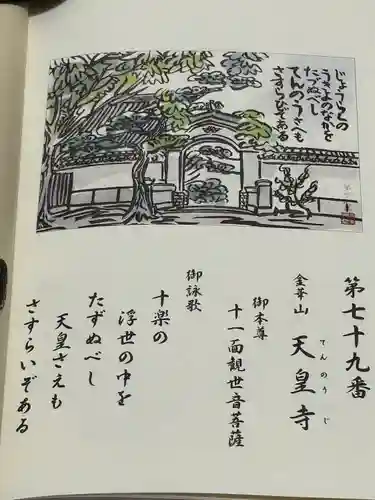 じょうらくの
うきよのなかを
たづぬべし
てんのうさへも
さすらひぞある
第七十九番
金華山 天皇寺
てんのうじ
御本尊
十一面観世音菩薩
御詠歌
十楽の
浮世の中を
たずぬべし
天皇さえも
さすらいぞある